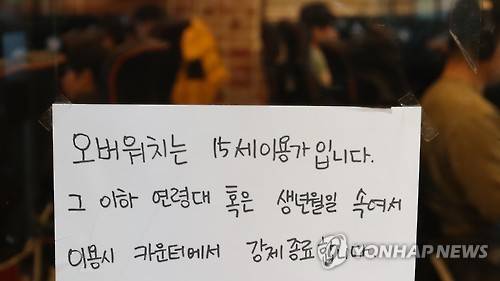 오버워치는 15세이용가입니다.
그 이하 연령대 혹은 생년월일 속여서
이용시 카운터에서 강제종료합니다
YONHAP NEWS
YONHAP NEWS